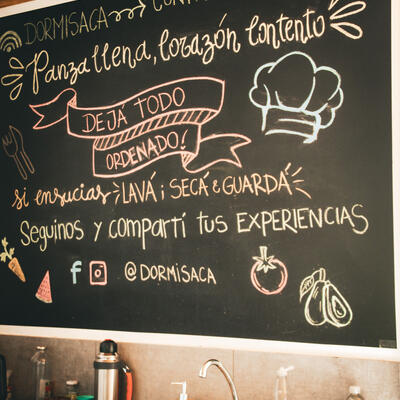 DORMISACA
DORMISACA
Panza llena, corazón contento
DEJÁ TODO
ORDENADO!
si ensucias LAVÁ; SECÁ & GUARDÁ
Seguinos y compartí tus EXPERIENCIAS
f @DORMISACA